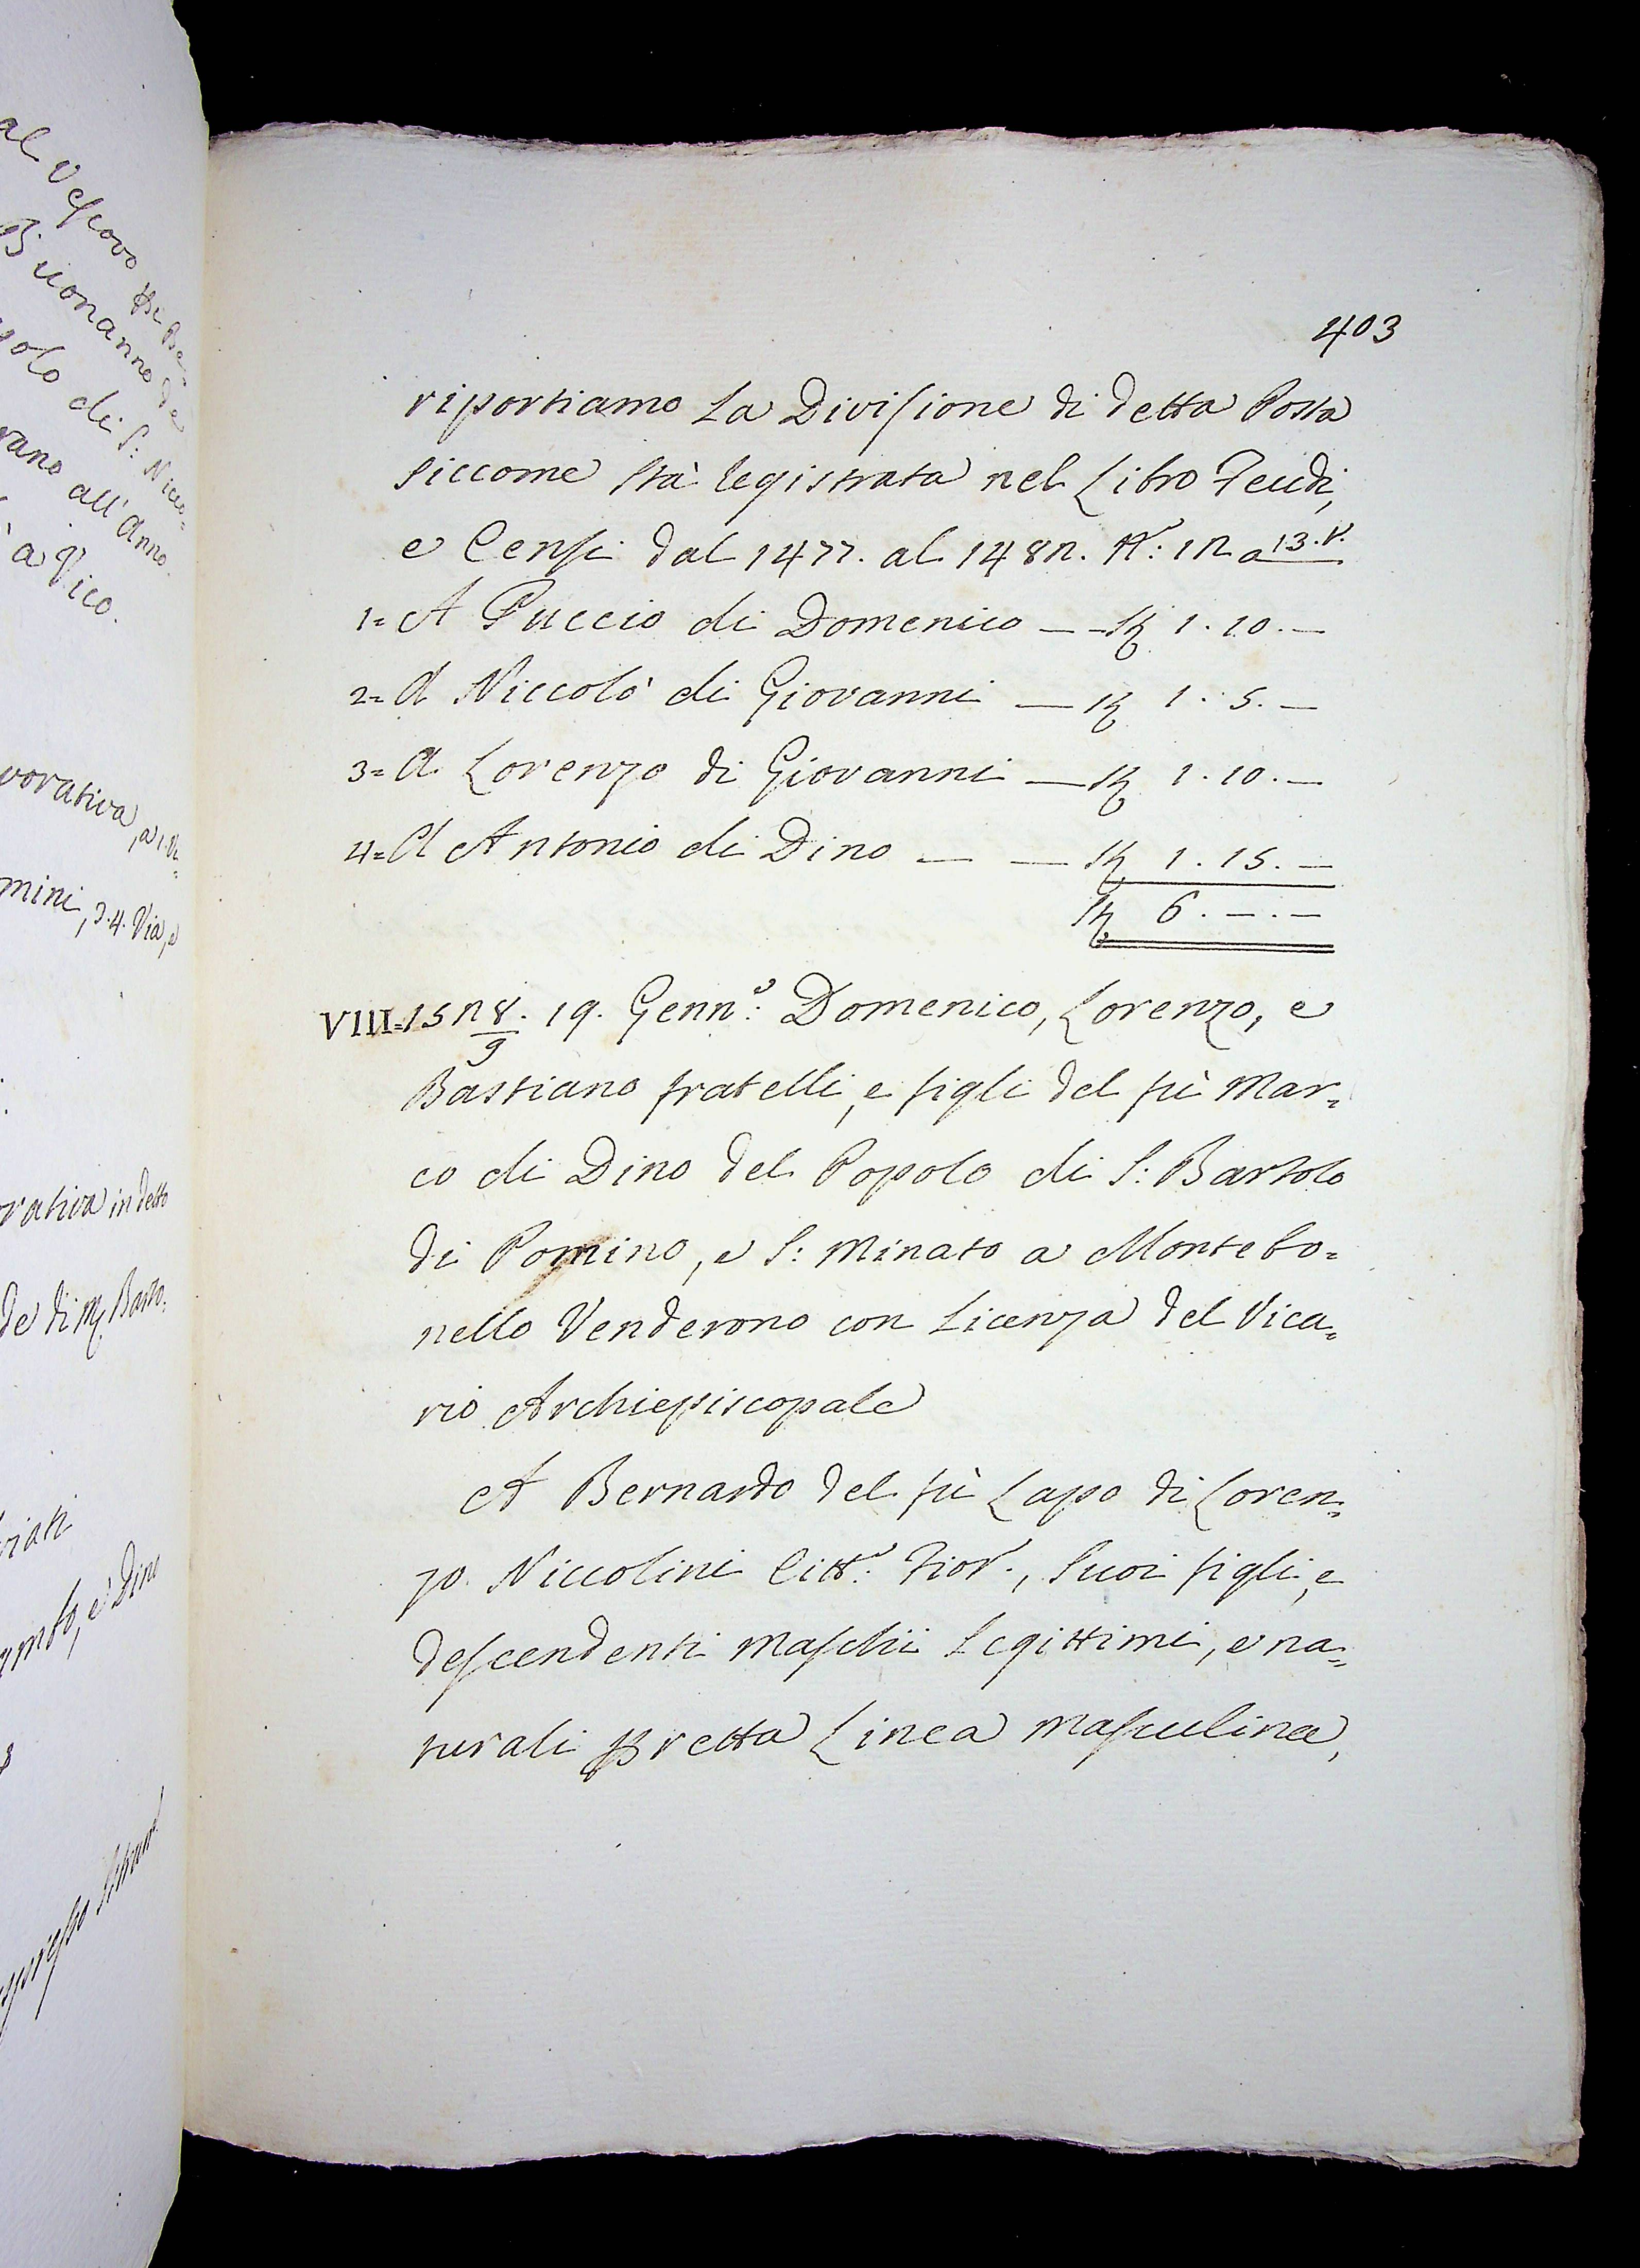 al Vescovo
Buonanno de
polo di S: Nico=
rano all'Anno
a Vico.
vorativa, a 1. V.
mini, 3.4. Via, e
rativa in detto
de di M. Barto.
403
riportiamo la Divisione di detta Posta
siccome stà registrata nel Libro Feudi,
e Censi dal 1477. al 1482. N.: 12 a 13. v.
1= A Puccio di Domenico — — 1. 10. —
2= A Niccolò di Giovanni — 1. 5. —
3= A Lorenzo di Giovanni — 1. 10. —
4= A Antonio di Dino — — 1. 15. —
6. —. —
VIII= 1528/9. 19. Genn.: Domenico, Lorenzo, e
Bastiano fratelli, e figli del fù Mar=
co di Dino del Popolo di S: Bartolo
di Pomino, e S: Minato a Montebo=
nello Venderono con Licenza del Vica=
rio Archiepiscopale
A Bernardo del fù Lapo di Loren=
zo Niccolini Citt.: Fior., suoi figli, e
descendenti maschii legittimi, e na=
turali p retta Linea masculina,